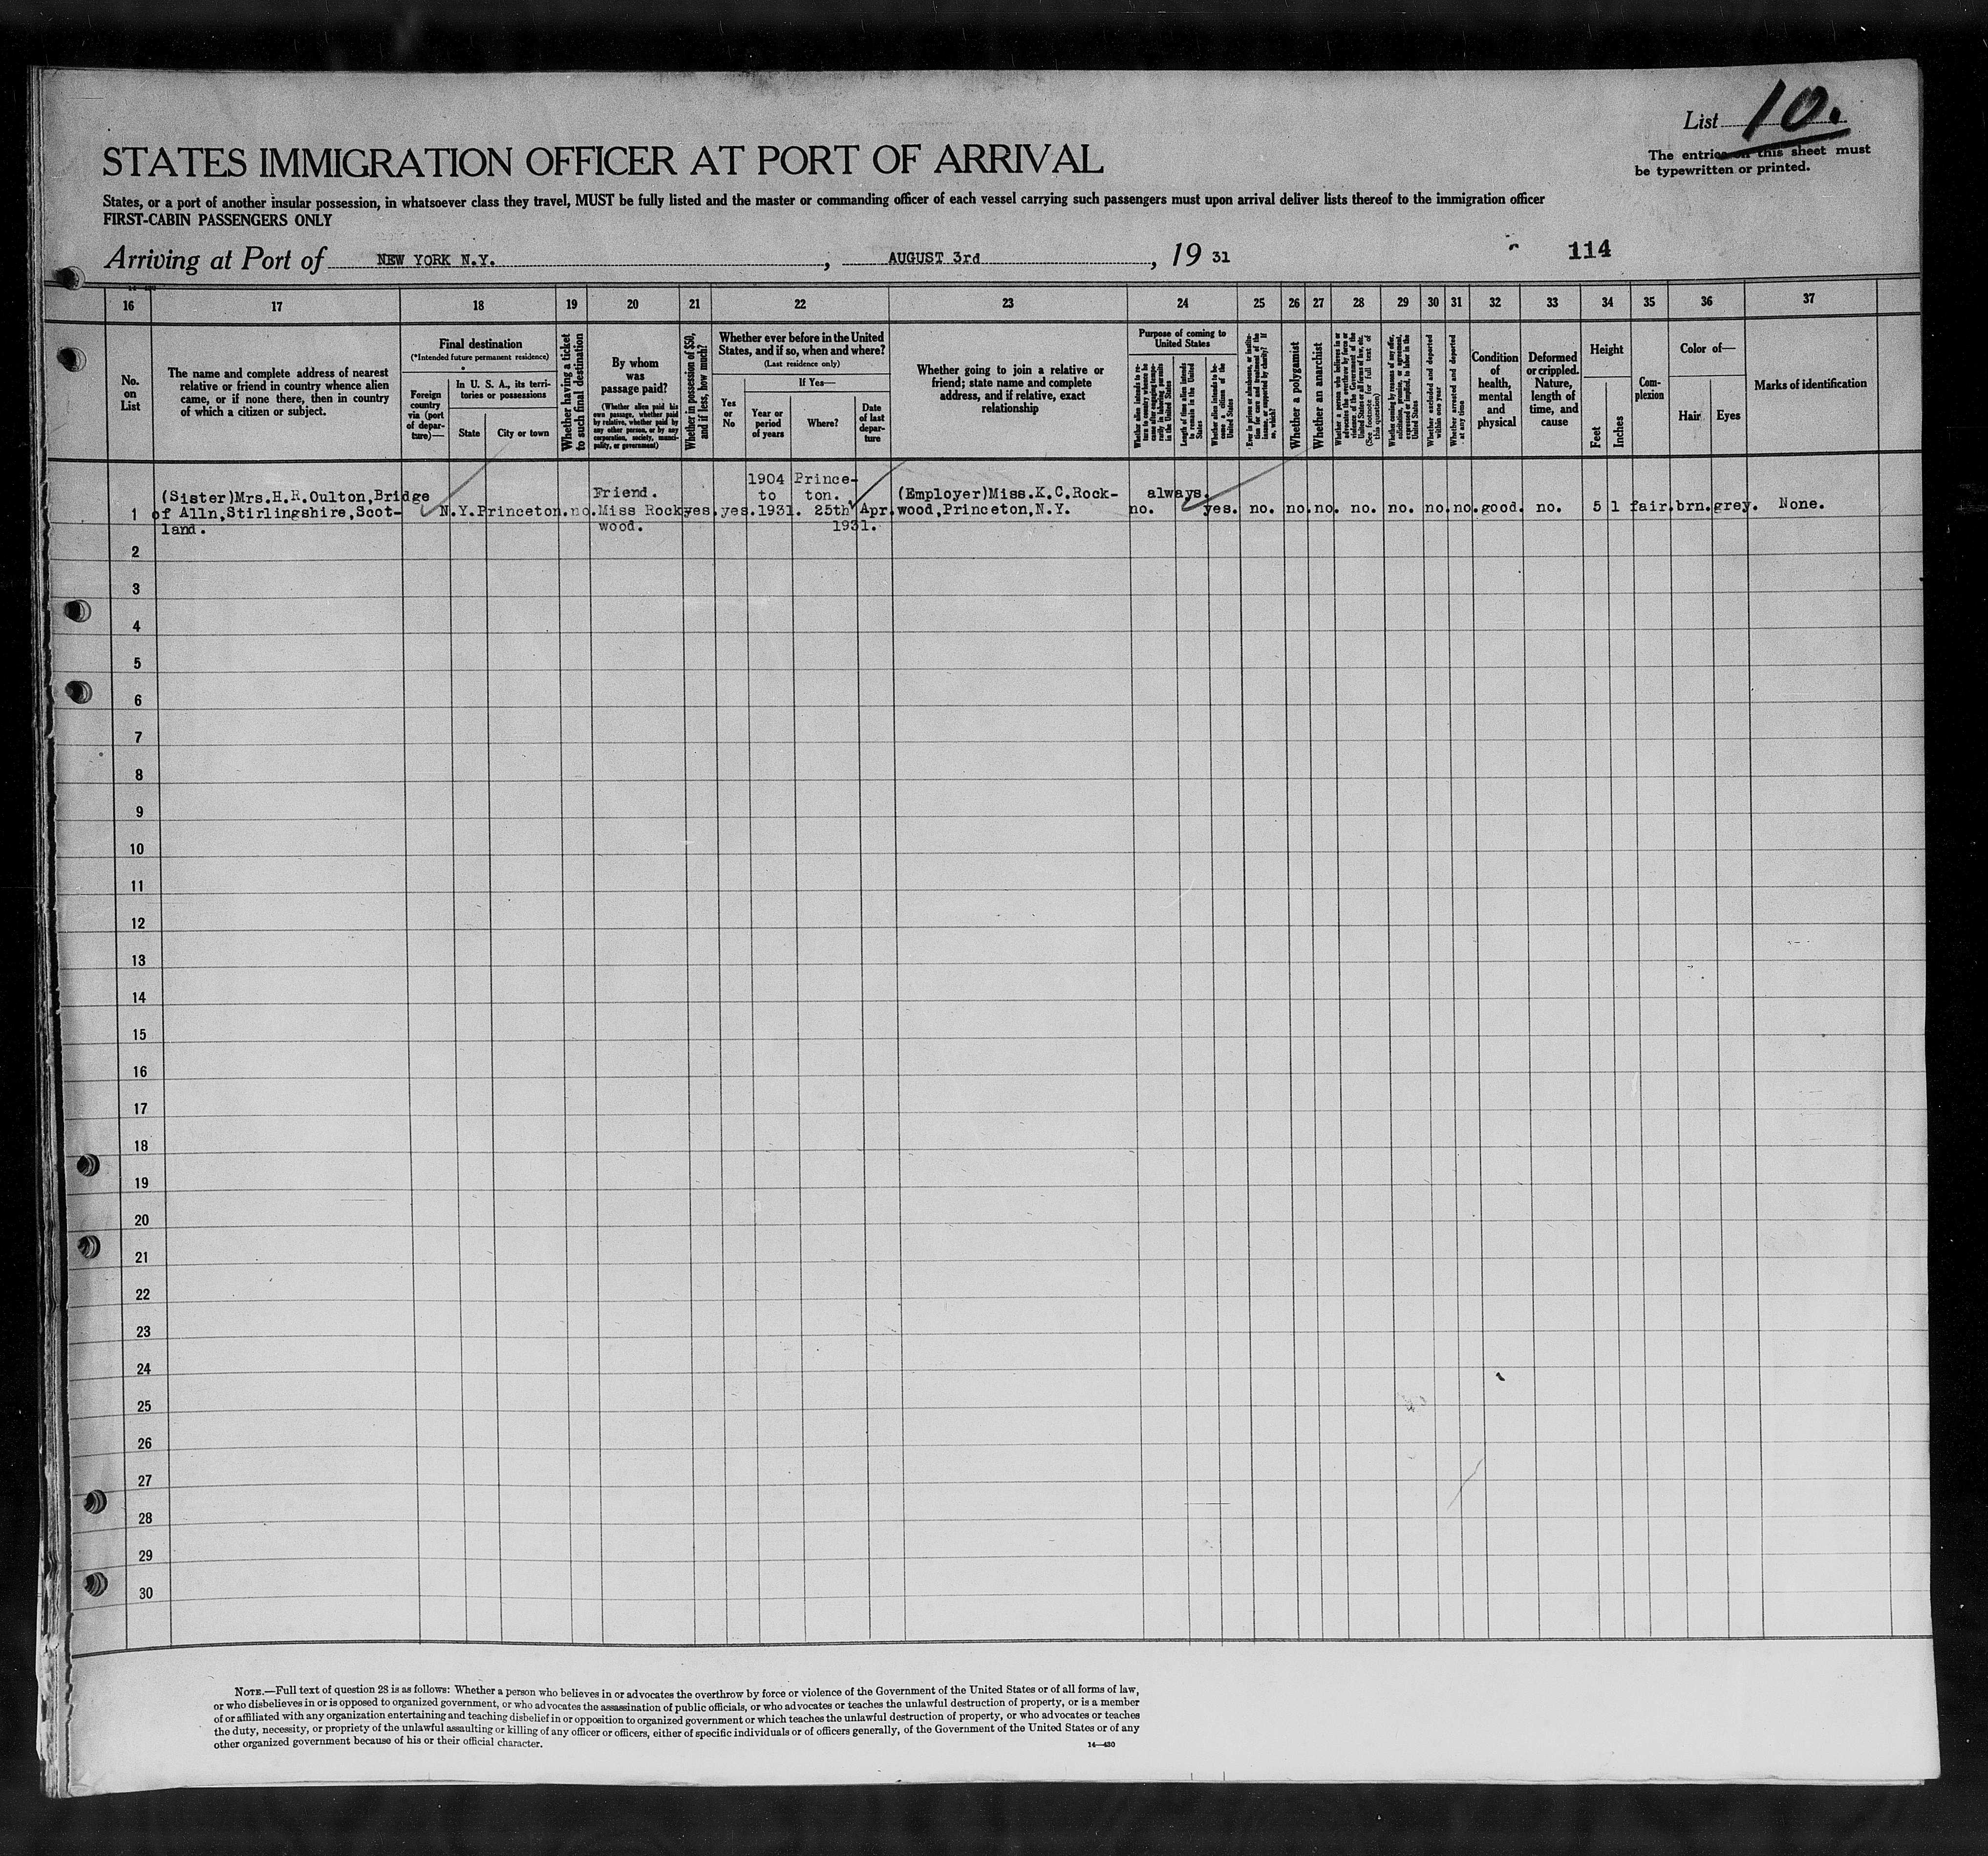 List 10.
The entries on this sheet must
be typewritten or printed.
STATES IMMIGRATION OFFICER AT PORT OF ARRIVAL
States, or a port of another insular possession, in whatsoever class they travel, MUST be fully listed and the master or commanding officer of each vessel carrying such passengers must upon arrival deliver lists thereof to the immigration officer
FIRST-CABIN PASSENGERS ONLY
Arriving at Port of NEW YORK N.Y., AUGUST 3rd, 19 31
114
16 17 18 19 20 21 22 23 24 25 26 27 28 29 30 31 32 33 34 35 36 37
No.
on
List
The name and complete address of nearest
relative or friend in country whence alien
came, or if none there, then in country
of which a citizen or subject.
Final destination
(*Intended future permanent residence)
Foreign
country
via (port
of depar-
ture)—
In U. S. A., its terri-
tories or possessions
State
City or town
Whether having a ticket
to such final destination
By whom
was
passage paid?
(Whether alien paid his
own passage, whether paid
by relative, whether paid by
any other person, or by any
corporation, society, munici-
pality, or government)
Whether in possession of $50,
and if less, how much?
Whether ever before in the United
States, and if so, when and where?
(Last residence only)
Yes
or
No
If Yes—
Year or
period
of years
Where?
Date
of last
depar-
ture
Whether going to join a relative or
friend; state name and complete
address, and if relative, exact
relationship
Purpose of coming to
United States
Length of time alien intends
to remain in the United
States
Whether alien intends to be-
come a citizen of the
United States
Whether a polygamist
Whether an anarchist
Whether excluded and deported
within one year
Whether arrested and deported
at any time
Condition
of
health,
mental
and
physical
Deformed
or crippled.
Nature,
length of
time, and
cause
Height
Feet
Inches
Com-
plexion
Color of—
Hair
Eyes
Marks of identification
1904 Prince-
(Sister)Mrs.H.R.Oulton,Bridge Friend. to ton. (Employer)Miss.K.C.Rock- always.
1 of Alln,Stirlingshire,Scot- N.Y.Princeton.no.Miss Rock yes.yes.1931. 25th Apr.wood,Princeton,N.Y. no. yes. no. no. no. no. no. no. no. good. no. 5 1 fair.brn.grey. None.
land. wood. 1931.
2
3
4
5
6
7
8
9
10
11
12
13
14
15
16
17
18
19
20
21
22
23
24
25
26
27
28
29
30
NOTE.—Full text of question 28 is as follows: Whether a person who believes in or advocates the overthrow by force or violence of the Government of the United States or of all forms of law,
or who disbelieves in or is opposed to organized government, or who advocates the assassination of public officials, or who advocates or teaches the unlawful destruction of property, or is a member
of or affiliated with any organization entertaining and teaching disbelief in or opposition to organized government or which teaches the unlawful destruction of property, or who advocates or teaches
the duty, necessity, or propriety of the unlawful assaulting or killing of any officer or officers, either of specific individuals or of officers generally, of the Government of the United States or of any
other organized government because of his or their official character.
14—430